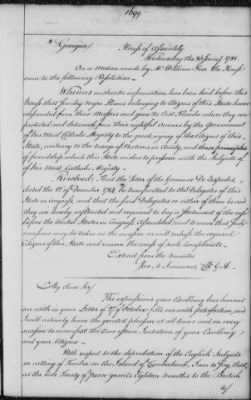 1699
Georgia
House of Assembly
On a motion made by Mr William Few the House
came to the following Resolution.
Whereas authentic information has been laid before this
House that sundry negro slaves belonging to Citizens of this State have
absconded from their Masters and gone to East Florida where they are
protected and detained from their rightful owners by the Government
of his Most Catholic Majesty to the great injury of the Citizens of this
State, contrary to the usage of Nations in Amity, and those principles
of friendship which this State wishes to preserve with the Subjects of
of his Most Catholic Majesty.
Resolved, That the letter of the Governor
dated the 12 of December 1784, be transmitted to the Delegates of this
State in Congress, and that the said Delegates or either of them be and
they are hereby instructed and required to lay a statement of the
before the United States in Congress Assembled and to move that such
measures may be taken on the occasion as will redress the injured
Citizens of this State and remove the cause of such complaints.
Extract from the minutes
C. G. A.
My dear Sir
The expressions your Excellency has honored
me with in your Letter of 29 of October fills me with satisfaction, and
I will actively have the greatest pleasure at all times and on every
occasion to manifest the true esteem
and your citizens.
With respect to the depredation of the English Subjects
on cutting of Timber on the Island of Cumberland, I am to say, that,
as the late Treaty of Peace grants Eighteen months to the British
to